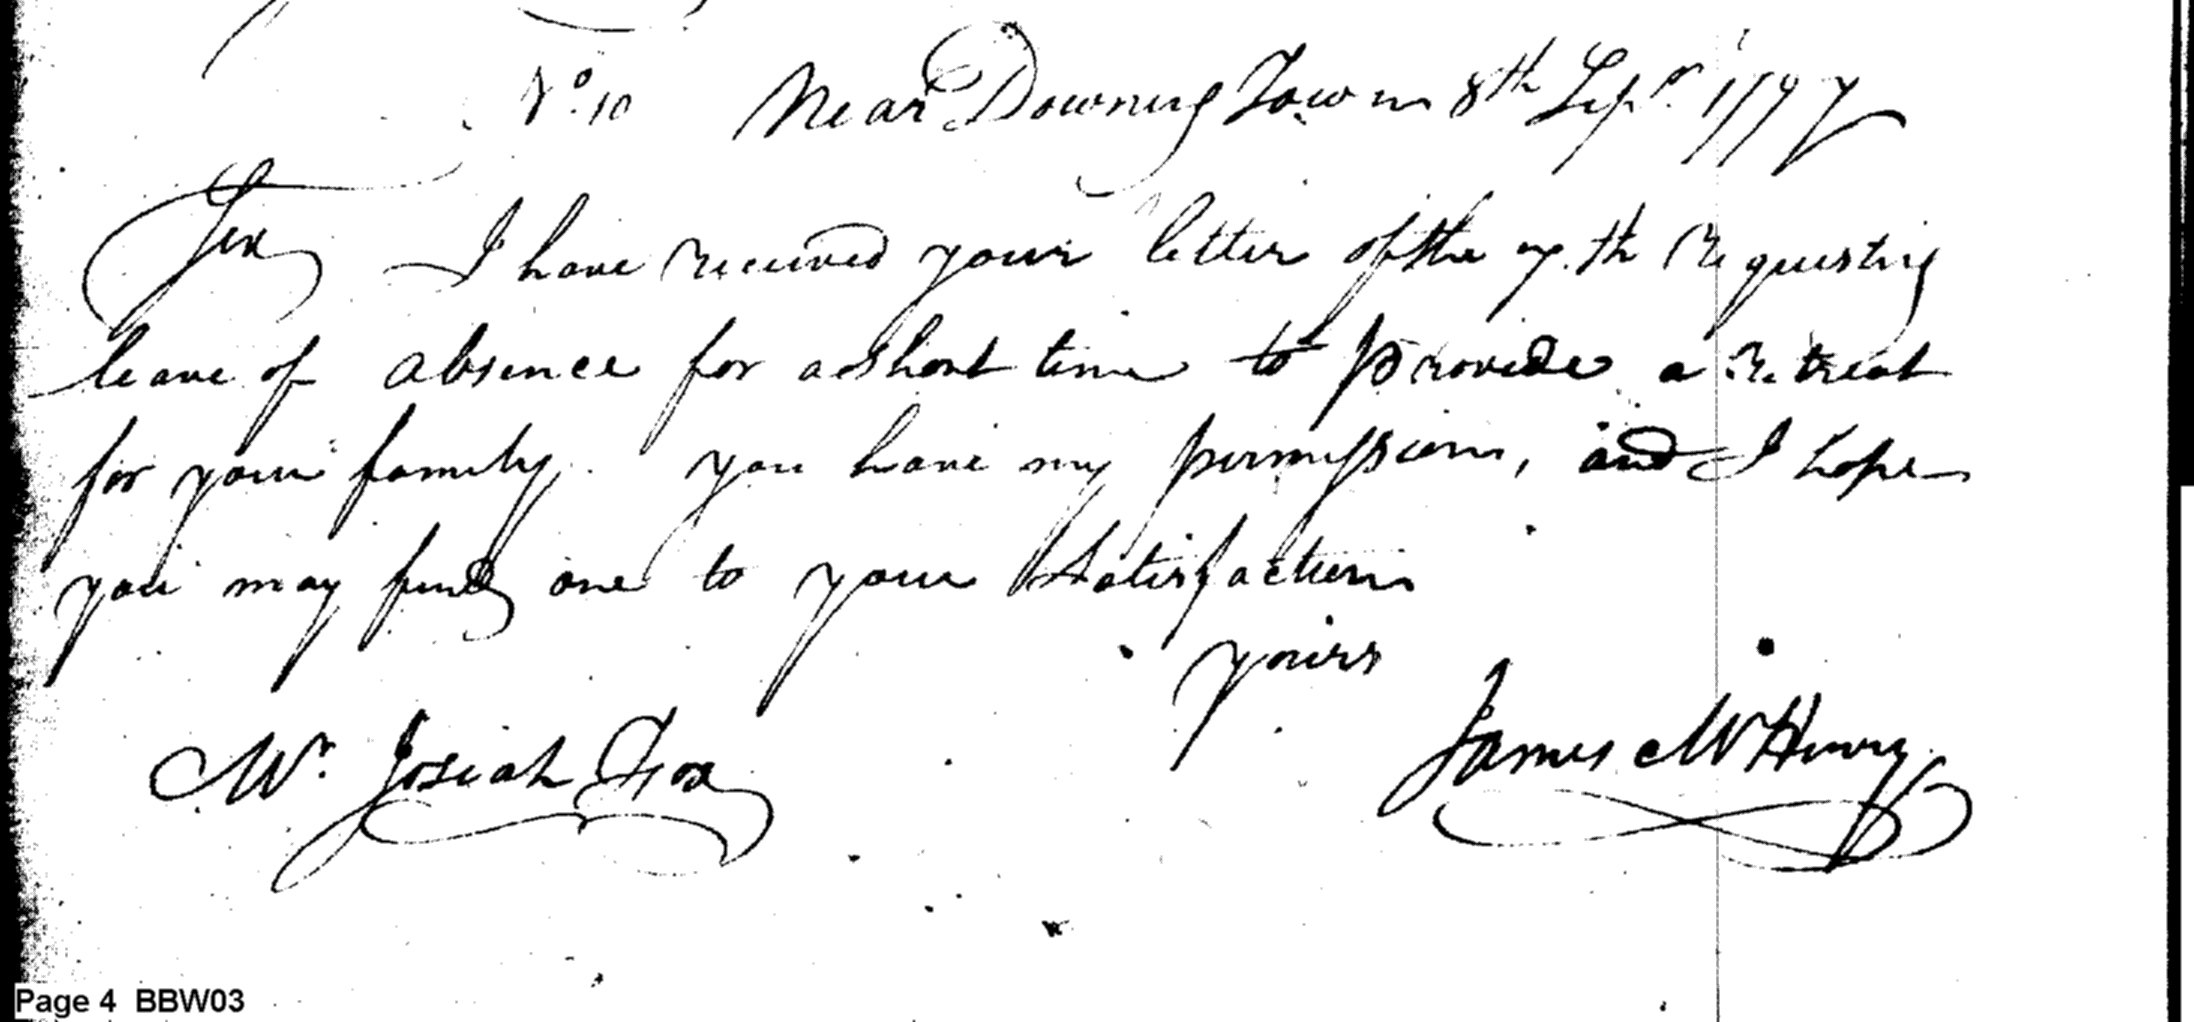 No. 10 Near Downing Town 8th Sepr. 1797
Sir I have received your letter of the 7.th requesting
leave of absence for a short time to provide a retreat
for your family. you have my permission, and I hope
you may find one to your satisfaction
yours
Mr. Josiah Fox James McHenry
Page 4 BBW03